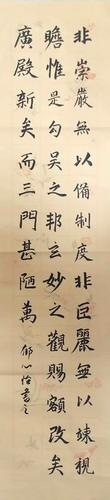 非崇嚴無以備制度非巨麗無以竦視
瞻惟是勾吳之邦玄妙之觀賜額改矣
廣殿新矣而三門甚陋萬